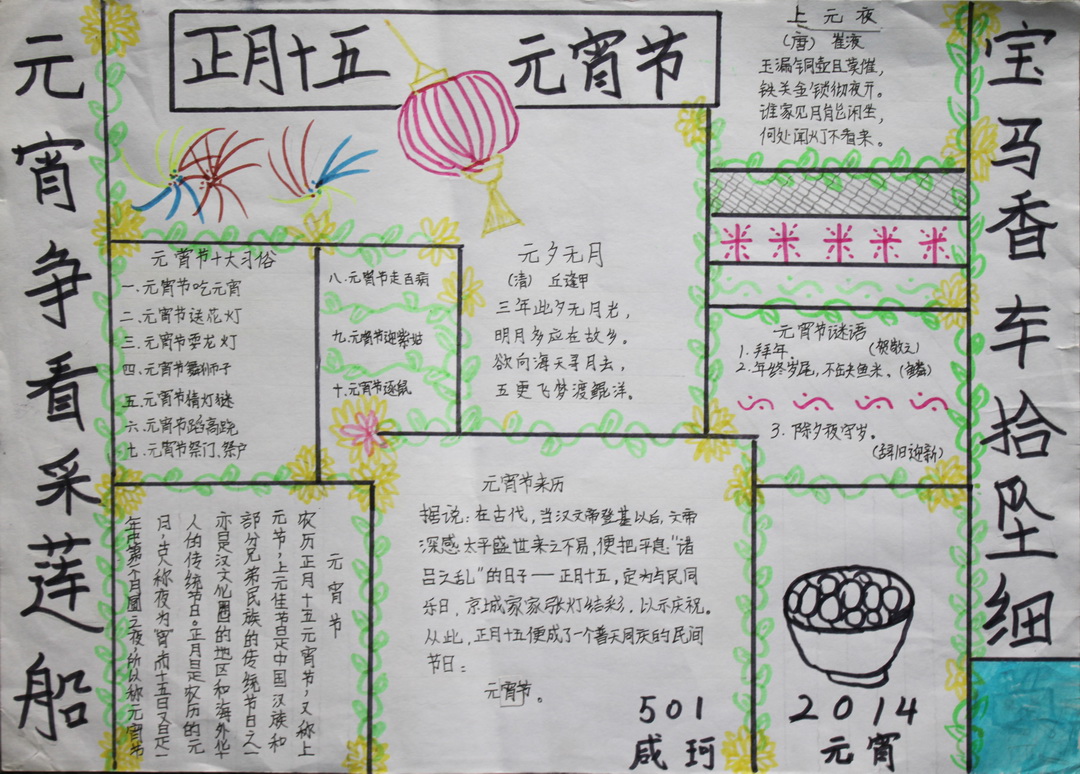 正月十五 元宵节
元宵争看采莲船
宝马香车拾坠细
上元夜
(唐) 崔液
玉漏铜壶且莫催,
铁关金锁彻夜开。
谁家见月能闲坐,
何处闻灯不看来。
元宵节十大习俗
一.元宵节吃元宵
二.元宵节送花灯
三.元宵节耍龙灯
四.元宵节舞狮子
五.元宵节猜灯谜
六.元宵节踏高跷
七.元宵节祭门、祭户
八.元宵节走百病
九.元宵节迎紫姑
十.元宵节逐鼠
元夕无月
(清) 丘逢甲
三年此夕无月光,
明月多应在故乡。
欲向海天寻月去,
五更飞梦渡鲲洋。
元宵节谜语
1.拜年。 (贺敬之)
2.年终岁尾,不缺鱼米。(鳞)
3.除夕夜守岁。
(辞旧迎新)
元宵节
农历正月十五元宵节,又称上
元节,上元佳节是中国汉族和
部分兄弟民族的传统节日之一
亦是汉文化圈的地区和海外华
人的传统节日。正月是农历的元
月,古人称夜为宵而十五日又是一
年中第一个月圆之夜,所以称元宵节
元宵节来历
据说:在古代,当汉文帝登基以后,文帝
深感太平盛世来之不易,便把平息“诸
吕之乱”的日子——正月十五,定为与民同
乐日,京城家家张灯结彩,以示庆祝。
从此,正月十五便成了一个普天同庆的民间
节日:
元宵节。
501
咸珂
2014
元宵